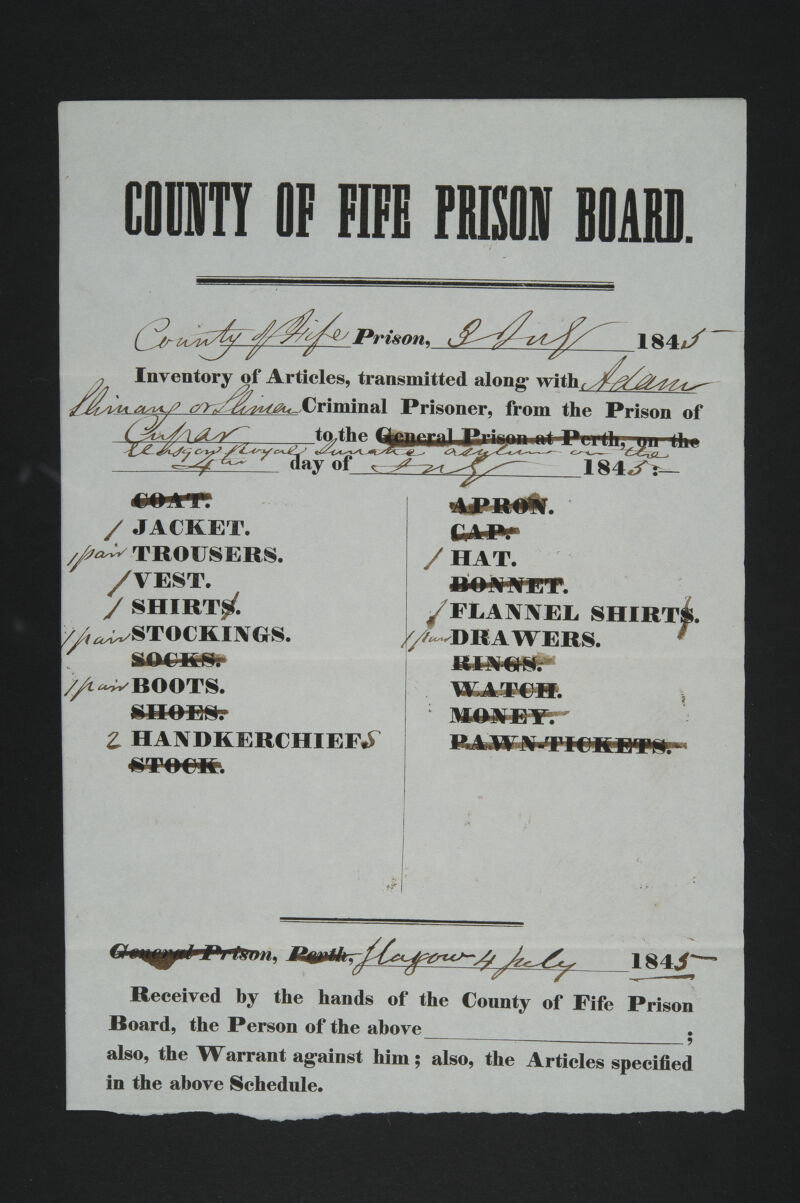 COUNTY OF FIFE PRISON BOARD.
County of Fife Prison, 3 July 1845
Inventory of Articles, transmitted along with Adam
or Criminal Prisoner, from the Prison of
Cupar to the General Prison at Perth, on the
Glasgow Royal Lunatic Asylum on the
4th day of July 1845:—
COAT.
1 JACKET.
1 pair TROUSERS.
1 VEST.
1 SHIRTS.
1 pair STOCKINGS.
SOCKS.
1 pair BOOTS.
SHOES.
2 HANDKERCHIEFS
STOCK.
APRON.
CAP.
1 HAT.
BONNET.
1 FLANNEL SHIRTS.
1 pair DRAWERS.
RINGS.
WATCH.
MONEY.
PAWN-TICKETS.
General Prison, Perth, Glasgow 4 July 1845
Received by the hands of the County of Fife Prison
Board, the Person of the above ;
also, the Warrant against him; also, the Articles specified
in the above Schedule.